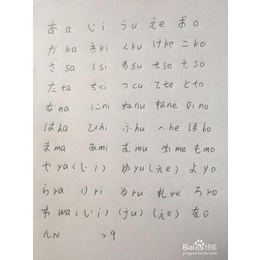 あa いi うu えe おo
かka きki くku けke こko
さsa しsi すsu せse そso
たta ちci つcu てte とto
なna にni ぬnu ねne のno
はha ひhi ふhu へhe ほho
まma みmi むmu めme もmo
やya (いi) ゆyu (えe) よyo
らra りri るru れre ろro
わwa (いi) (うu) (えe) をo
んN っq
Baidu经验